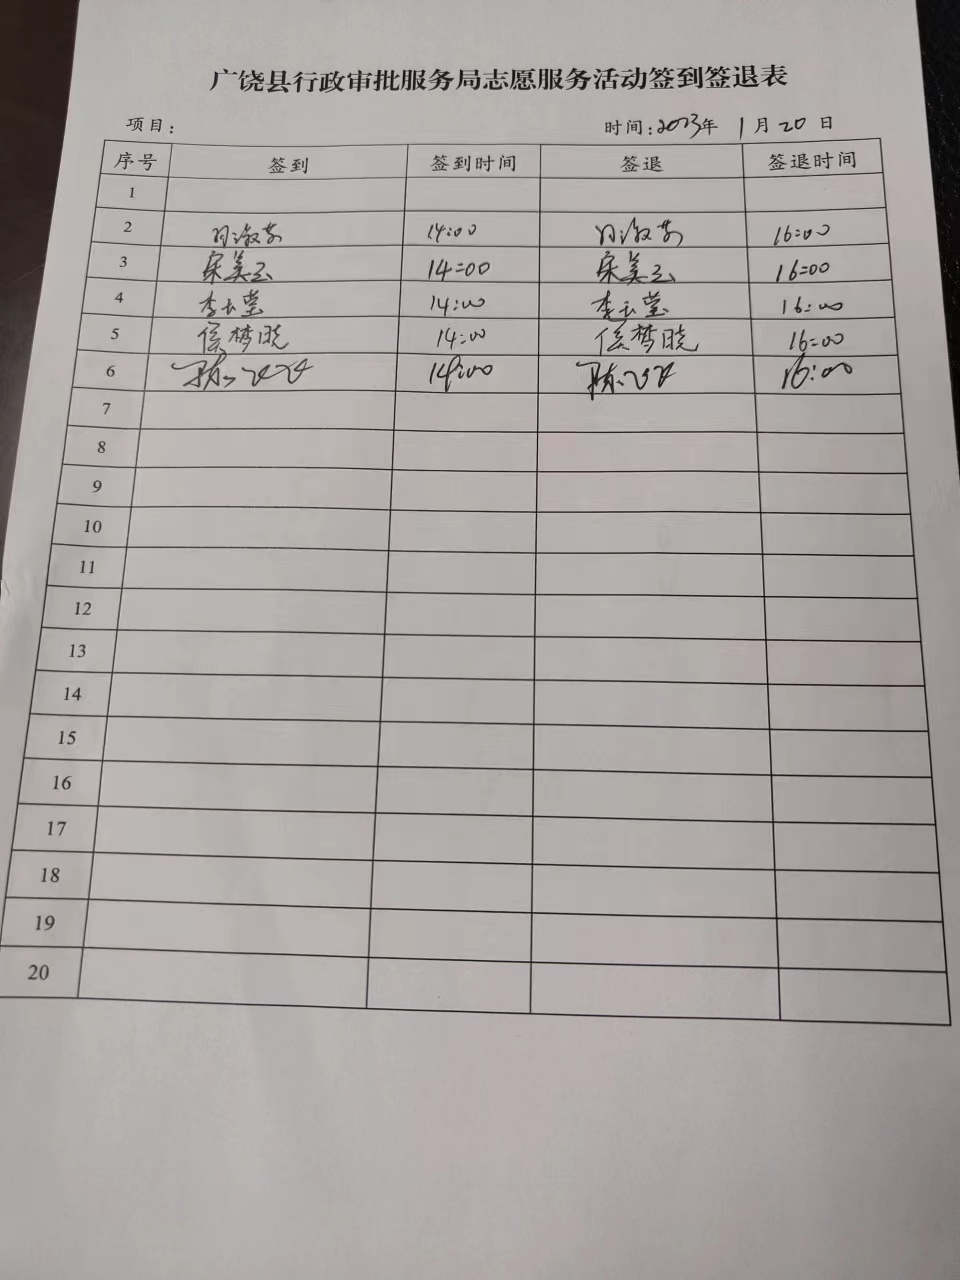 广饶县行政审批服务局志愿服务活动签到签退表
项目: 时间:2023年 1月20日
序号 签到 签到时间 签退 签退时间
1
2 14:00 16:00
3 宋美云 14:00 宋美云 16:00
4 李玉莹 14:00 李玉莹 16:00
5 侯梦晓 14:00 侯梦晓 16:00
6 14:00 16:00
7
8
9
10
11
12
13
14
15
16
17
18
19
20